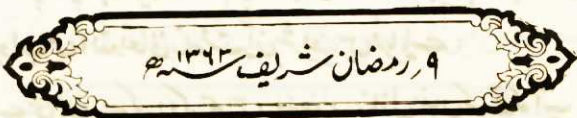 ۹؍ رمضان شریف ۱۳۶۳ سنہ ھ